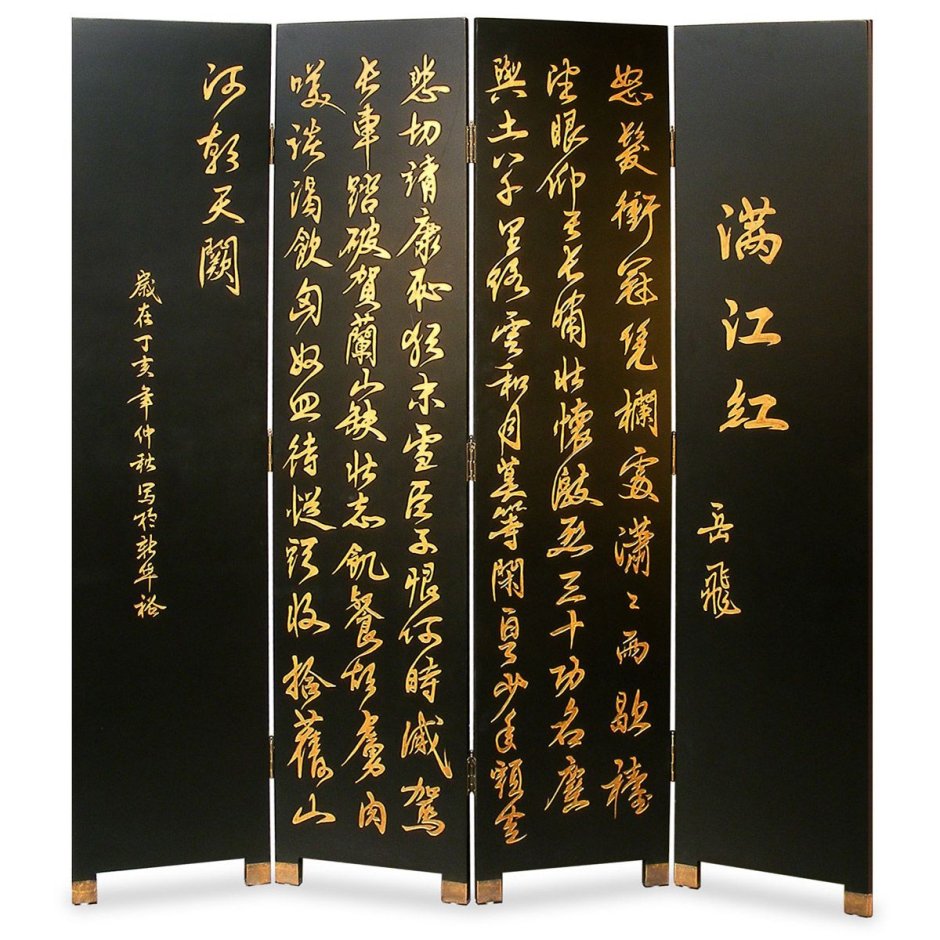 满江红
岳飛
怒髮衝冠凭欄處瀟〻雨歇擡
望眼仰天长嘯壮懷激烈三十功名塵
與土八千里路雲和月莫等閑白了少年頭空
悲切靖康恥猶未雪臣子恨何時滅駕
长車踏破賀蘭山缺壮志飢餐胡虜肉
咲談渴飲匈奴血待從頭收拾舊山
河朝天闕
歲在丁亥年仲秋写於新华裕